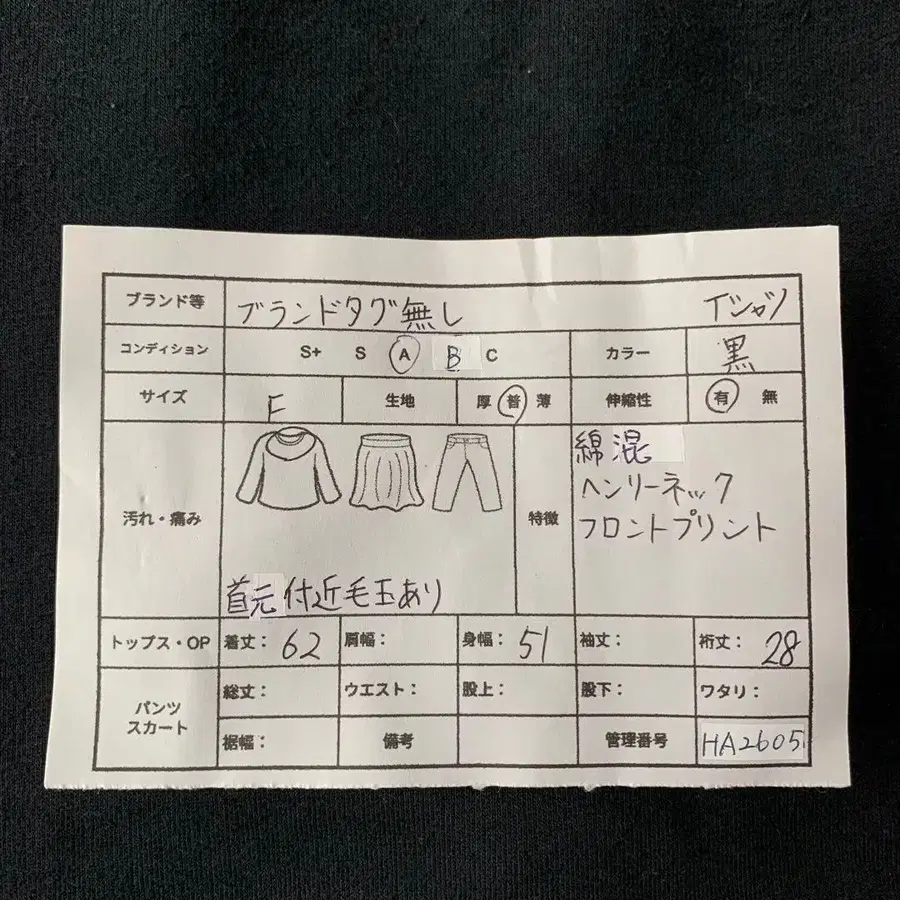 ブランド等 ブランドタグ無し Tシャツ
コンディション S+ S A B C カラー 黒
サイズ F 生地 厚 普 薄 伸縮性 有 無
汚れ・痛み 首元付近毛玉あり 特徴 綿混
ヘンリーネック
フロントプリント
トップス・OP 着丈: 62 肩幅: 身幅: 51 袖丈: 裄丈: 28
パンツ
スカート
総丈: ウエスト: 股上: 股下: ワタリ:
裾幅: 備考 管理番号 HA2605